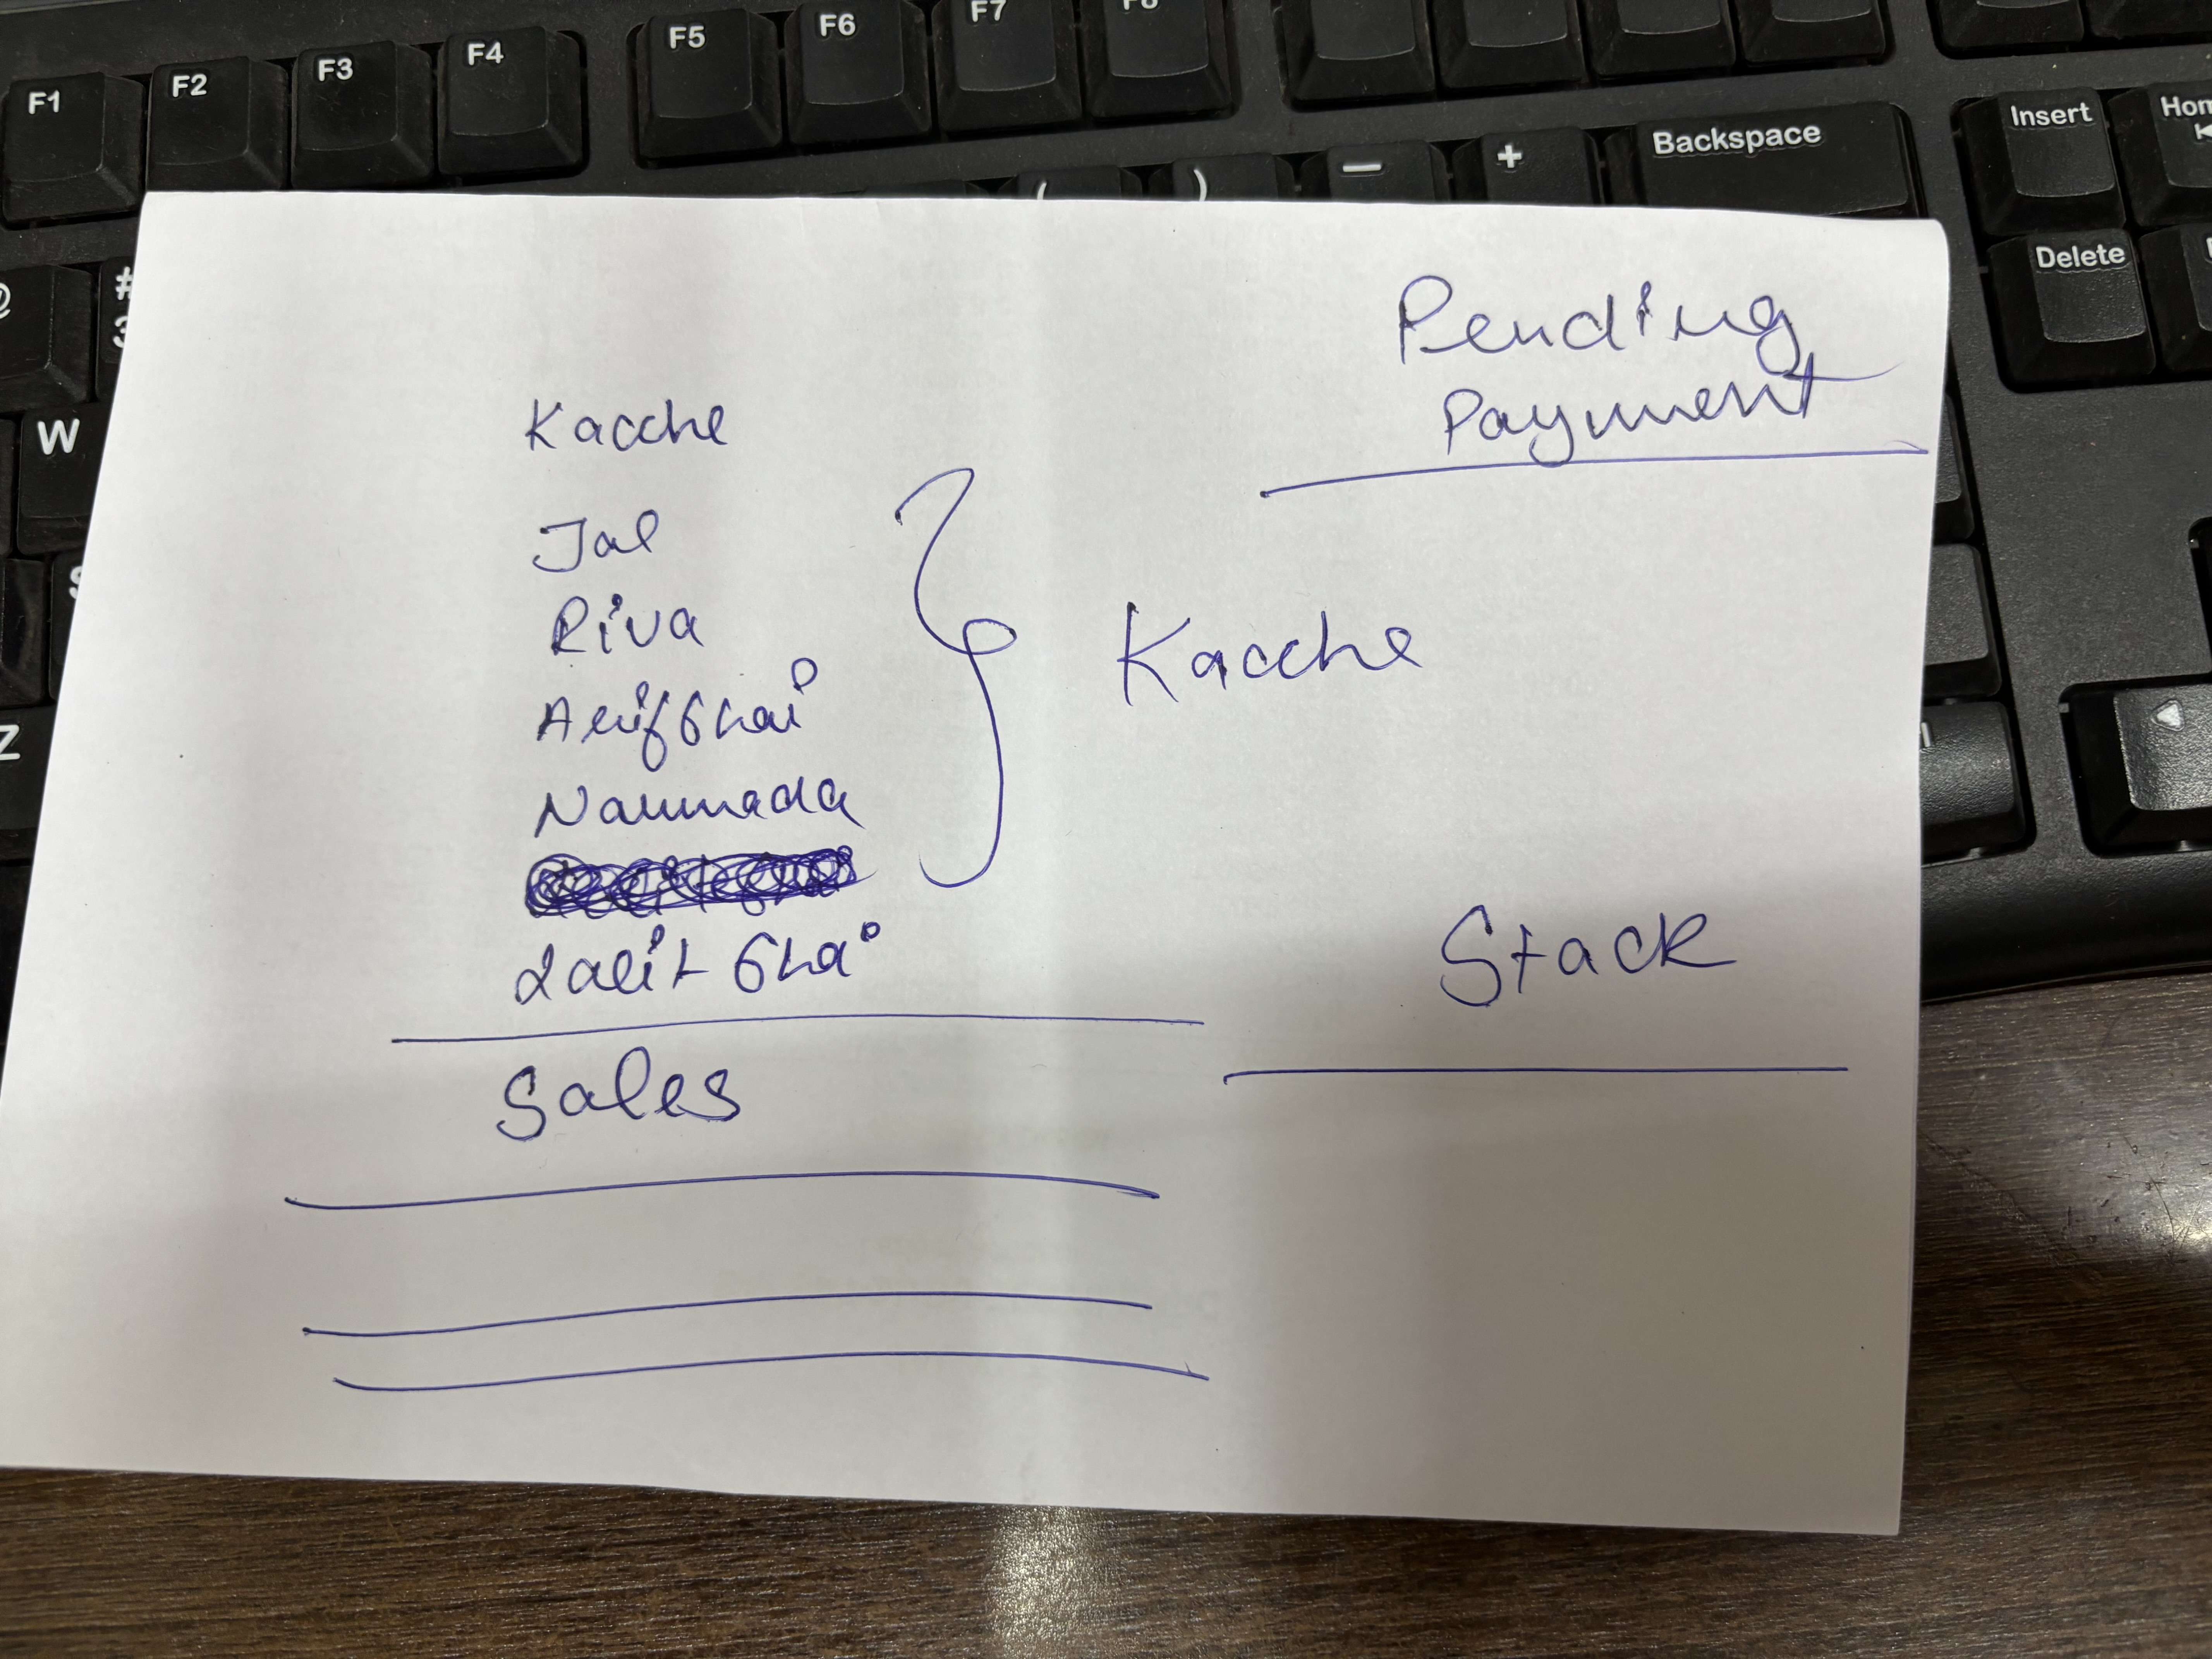 F1 F2 F3 F4 F5 F6 F7 F8
( ) - + Backspace Insert
Delete
@ #
3
W
S
Z
Pending
Payment
Kacche
Jal
Riva
Arifbhai
Narmada
Lalit bhai
Kacche
Stack
Sales